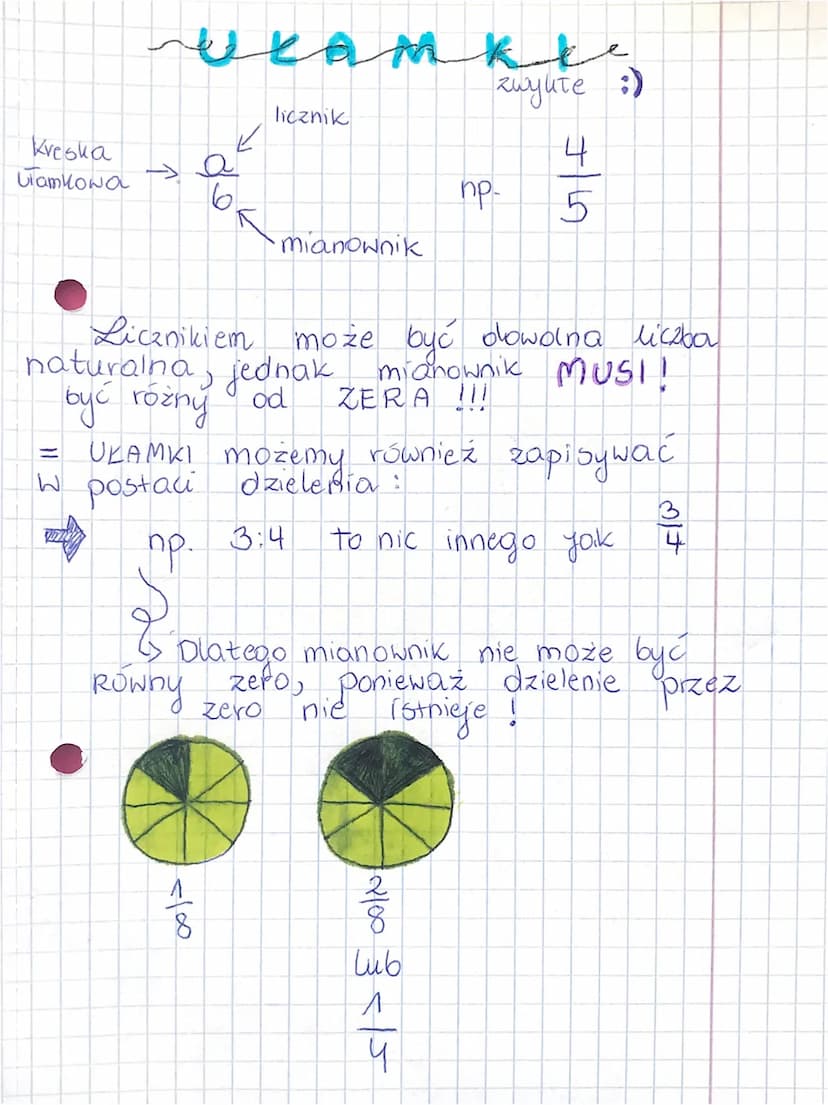 UŁAMKI
zwykłe :)
licznik
kreska
ułamkowa → a/b
mianownik
np. 4/5
Licznikiem może być dowolna liczba
naturalna, jednak mianownik MUSI!
być różny od ZERA !!!
= UŁAMKI możemy również zapisywać
w postaci dzielenia:
⇒ np. 3:4 to nic innego jak 3/4
↳ Dlatego mianownik nie może być
RÓWNY zero, ponieważ dzielenie przez
zero nie istnieje!
1/8 2/8
lub
1/4